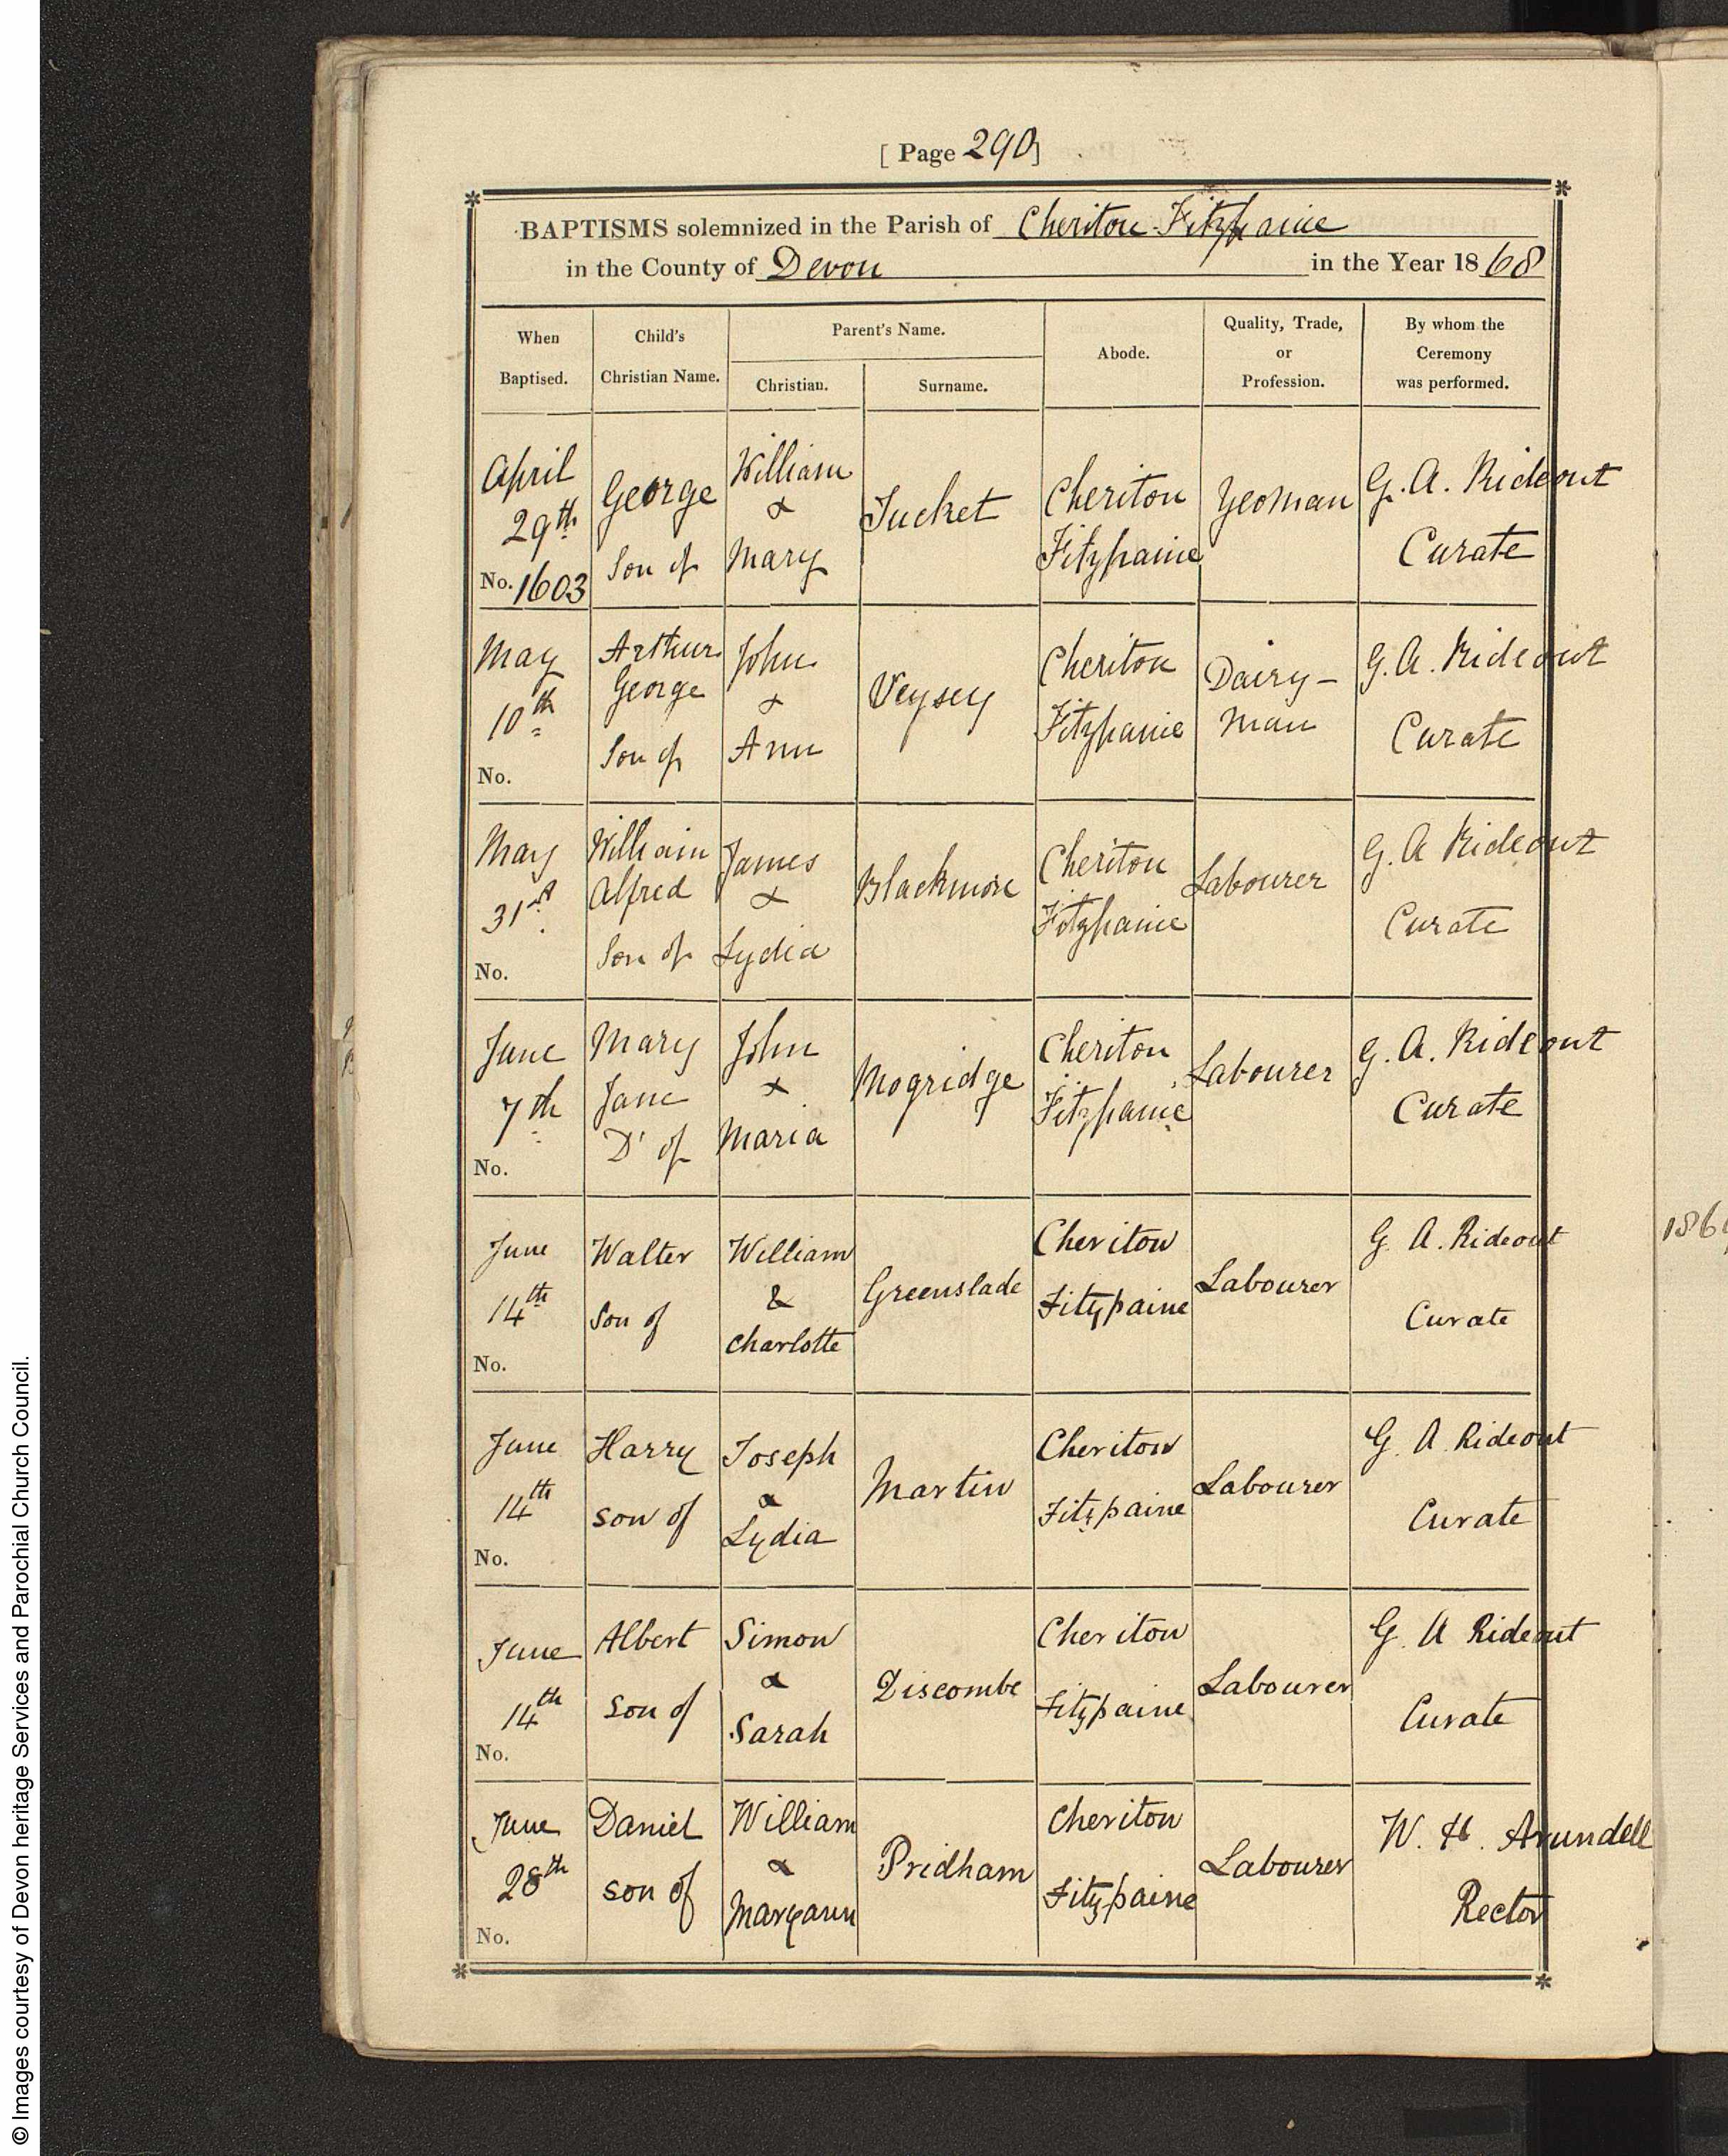 [ Page 290]
BAPTISMS solemnized in the Parish of Cheriton Fitzpaine
in the County of Devon in the Year 1868
When Baptised.
Child's Christian Name.
Parent's Name.
Christian.
Surname.
Abode.
Quality, Trade, or Profession.
By whom the Ceremony was performed.
April 29th No. 1603
George Son of
William & Mary
Tucket
Cheriton Fitzpaine
Yeoman
G. A. Rideout Curate
May 10th No.
Arthur George Son of
John & Ann
Veysey
Cheriton Fitzpaine
Dairy-man
G. A. Rideout Curate
May 31st No.
William Alfred Son of
James & Lydia
Blackmore
Cheriton Fitzpaine
Labourer
G. A Rideout Curate
June 7th No.
Mary Jane Dr of
John & Maria
Mogridge
Cheriton Fitzpaine
Labourer
G. A. Rideout Curate
June 14th No.
Walter Son of
William & Charlotte
Greenslade
Cheriton Fitzpaine
Labourer
G. A. Rideout Curate
June 14th No.
Harry son of
Joseph & Lydia
Martin
Cheriton Fitzpaine
Labourer
G. A. Rideout Curate
June 14th No.
Albert son of
Simon & Sarah
Discombe
Cheriton Fitzpaine
Labourer
G. A Rideout Curate
June 28th No.
Daniel son of
William &
Pridham
Cheriton Fitzpaine
Labourer
W. H. Arundell Rector
© Images courtesy of Devon heritage Services and Parochial Church Council.